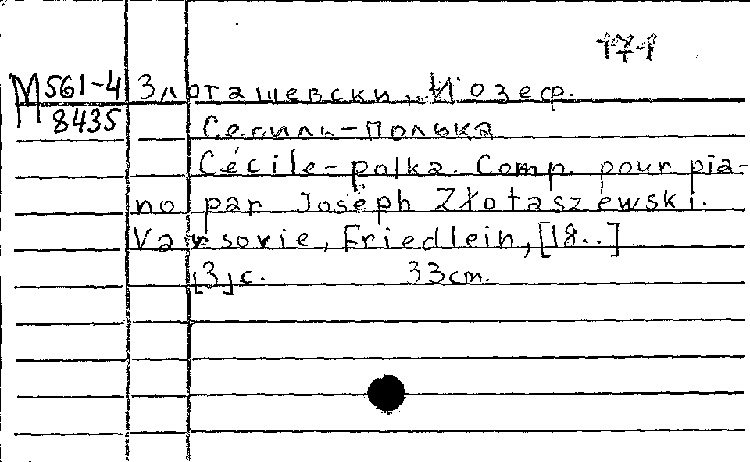 171
М 561-4 Злоташевски, Йозеф.
8435
Сесиль-полька
Cécile-polka. Comp. pour pia-
no par Joseph Złotaszewski.
Varsovie, Friedlein, [18..]
[3] с. 33 cm.